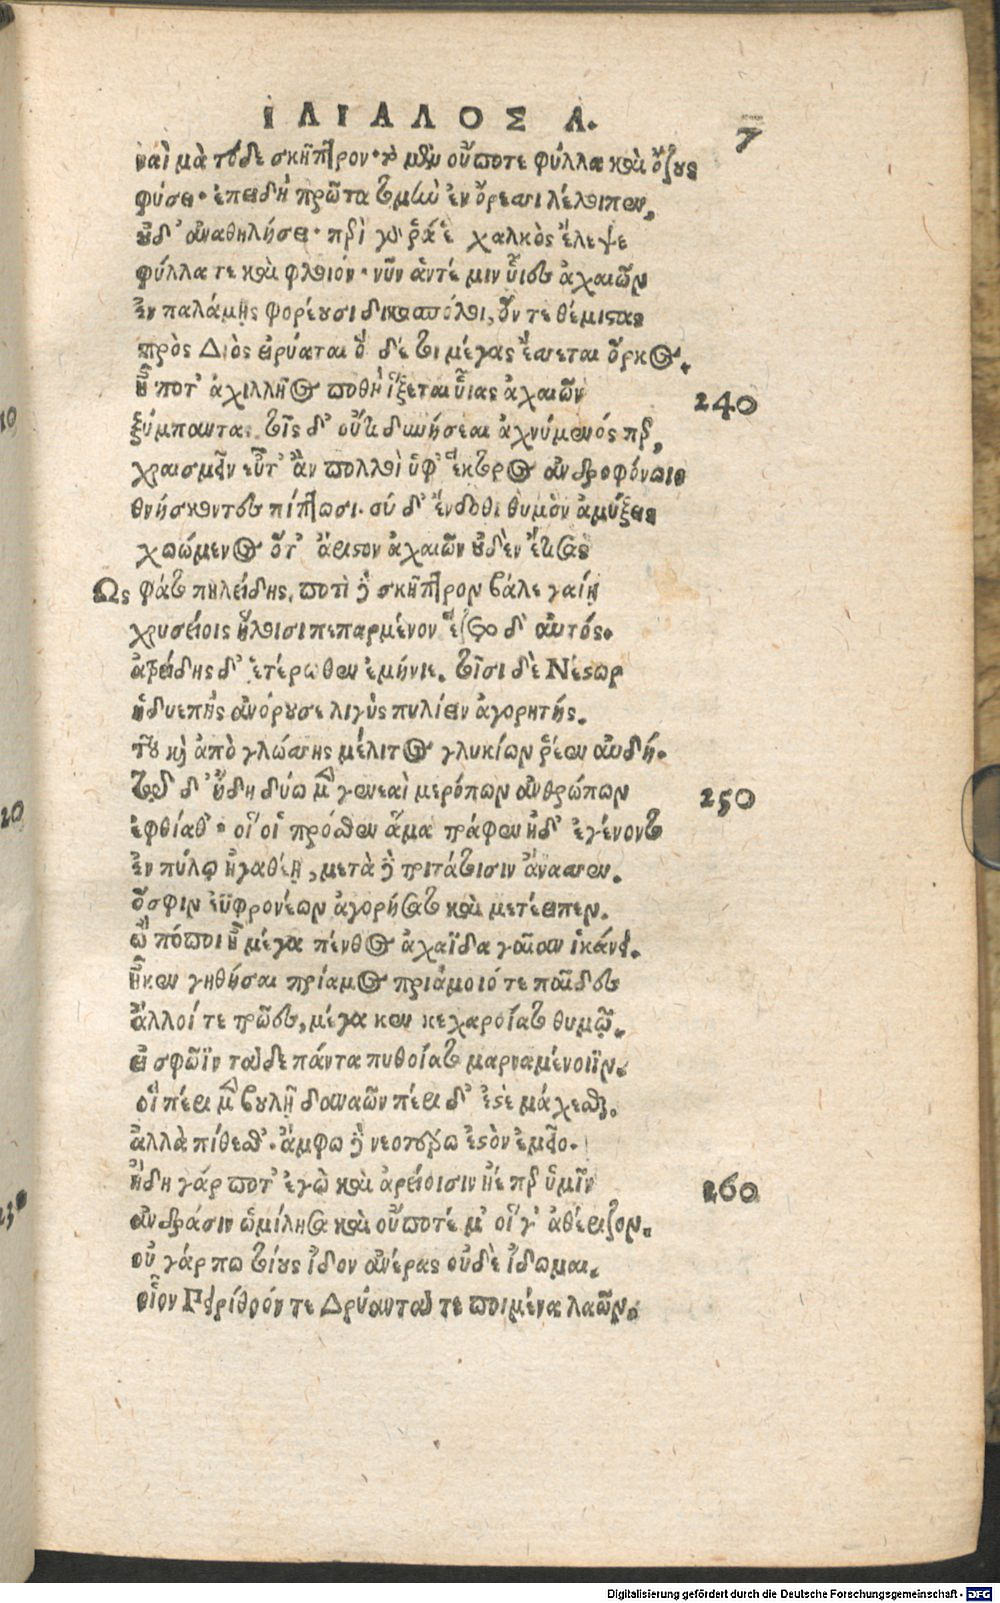 ΙΛΙΑΔΟΣ Α.
7
ναὶ μὰ τόδε σκῆπτρον· τὸ μὲν οὔποτε φύλλα καὶ ὄζους
φύσει· ἐπειδὴ πρῶτα τομὴν ἐν ὄρεσσι λέλοιπεν,
οὐδ' ἀναθηλήσει· περὶ γάρ ῥά ἑ χαλκὸς ἔλεψε
φύλλα τε καὶ φλοιόν· νῦν αὖτέ μιν υἷες ἀχαιῶν
ἐν παλάμῃς φορέουσι δικασπόλοι, οἵ τε θέμιστας
πρὸς Διὸς εἰρύαται ὁ δέ τοι μέγας ἔσσεται ὅρκος.
ἦ ποτ' ἀχιλλῆος ποθὴ ἵξεται υἷας ἀχαιῶν
240
ξύμπαντας. τοῖς δ' οὔτι δυνήσεαι ἀχνύμενός περ,
χραισμεῖν εὖτ' ἂν πολλοὶ ὑφ' ἕκτορος ἀνδροφόνοιο
θνήσκοντες πίπτωσι. σὺ δ' ἔνδοθι θυμὸν ἀμύξεις
χωόμενος ὅτ' ἄριστον ἀχαιῶν οὐδὲν ἔτισας
Ως φάτο πηλείδης, ποτὶ δὲ σκῆπτρον βάλε γαίῃ
χρυσείοις ἥλοισι πεπαρμένον ἕζετο δ' αὐτός.
ἀτρείδης δ' ἑτέρωθεν ἐμήνιε. τοῖσι δὲ Νέστωρ
ἡδυεπὴς ἀνόρουσε λιγὺς πυλίων ἀγορητής.
τοῦ καὶ ἀπὸ γλώσσης μέλιτος γλυκίων ῥέεν αὐδή.
τῷ δ' ἤδη δύο μὲν γενεαὶ μερόπων ἀνθρώπων
250
ἐφθίαθ' οἵ οἱ πρόσθεν ἅμα τράφεν ἠδ' ἐγένοντο
ἐν πύλῳ ἠγαθέῃ, μετὰ δὲ τριτάτοισιν ἄνασσεν.
ὅσφιν ἐϋφρονέων ἀγορήσατο καὶ μετέειπεν.
ὢ πόποι ἦ μέγα πένθος ἀχαΐδα γαῖαν ἱκάνει.
ἦ κεν γηθήσαι πρίαμος πριάμοιό τε παῖδες
ἄλλοί τε τρῶες, μέγα κεν κεχαροίατο θυμῷ.
εἰ σφῶϊν τάδε πάντα πυθοίατο μαρναμένοιϊν.
οἳ πέρι μὲν βουλῇ δαναῶν πέρι δ' ἐστὲ μάχεσθαι.
ἀλλὰ πίθεσθ'. ἄμφω δὲ νεοτέρω ἐστὸν ἐμεῖο.
ἤδη γάρ ποτ' ἐγὼ καὶ ἀρείοισιν ἠέ περ ὑμῖν
260
ἀνδράσιν ὡμίλησα καὶ οὔποτέ μ' οἵ γ' ἀθέριζον.
οὐ γάρ πω τοίους ἴδον ἀνέρας οὐδὲ ἴδωμαι.
οἷον Πειρίθοόν τε Δρύαντά τε ποιμένα λαῶν.
10
20
Digitalisierung gefördert durch die Deutsche Forschungsgemeinschaft - DFG